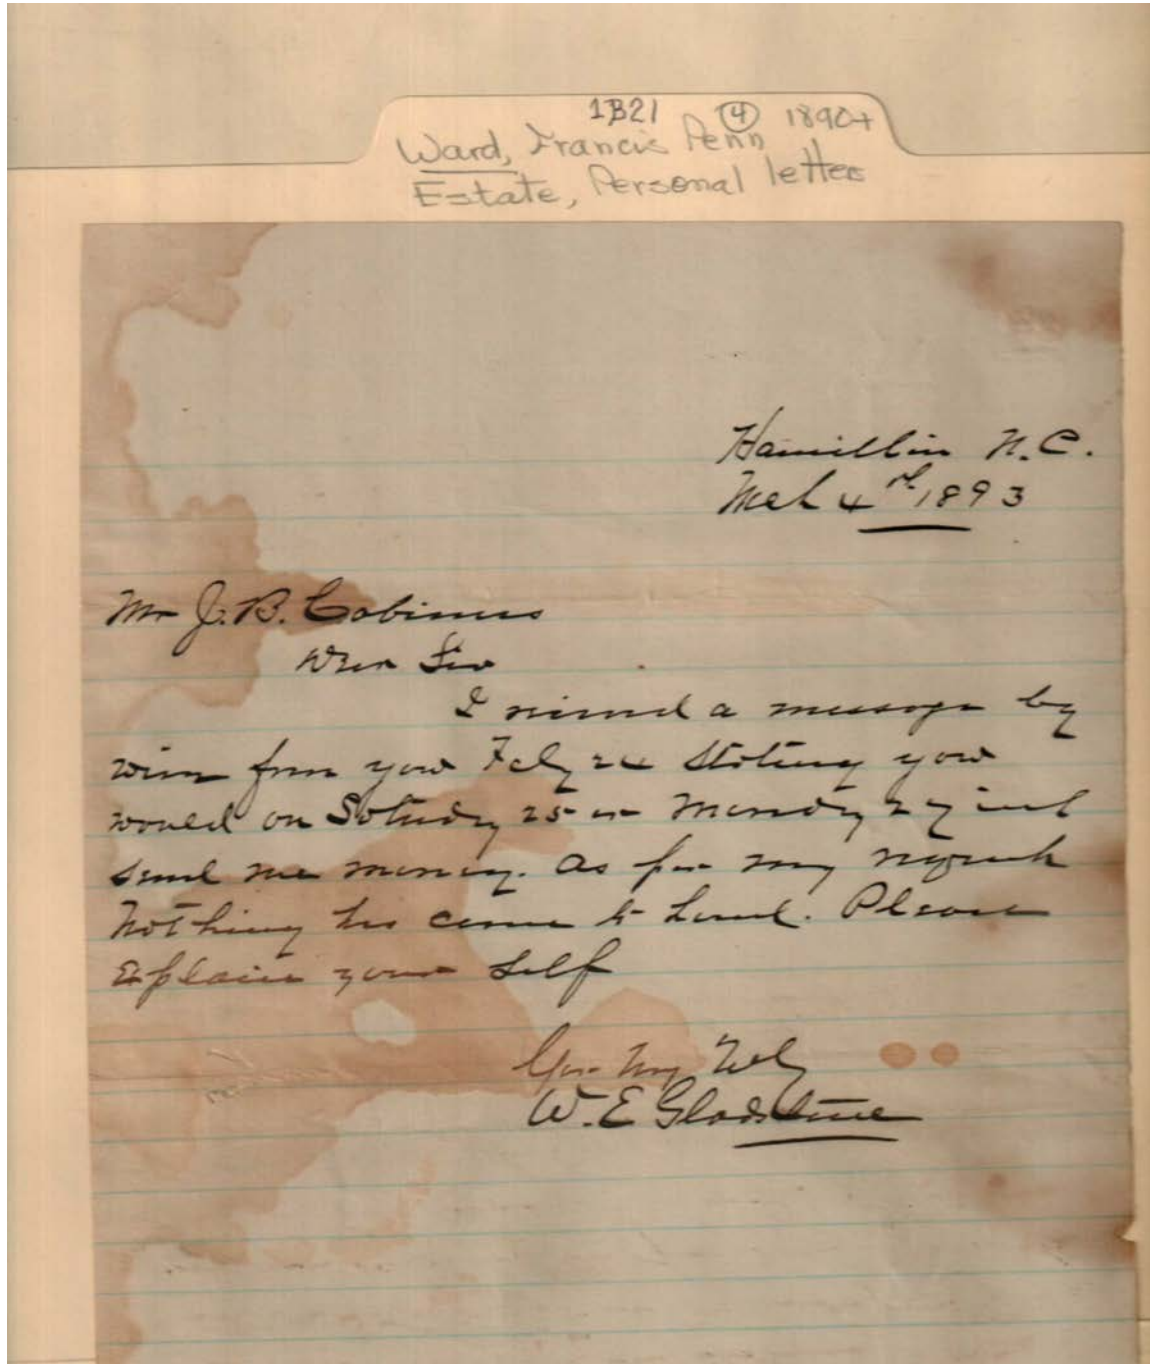 1B21 4 1890+
Ward, Francis Penn
Estate, Personal letter
Hamilton N.C.
Mch 4th 1893
Mr J. B.
Dear Sir
I received a message by
wire from you Feby 24 stating you
would on Saturday 25 or Monday 27 inst
send me money. As per my request
Nothing has come to hand. Please
Explain your self
W. E Gladstone